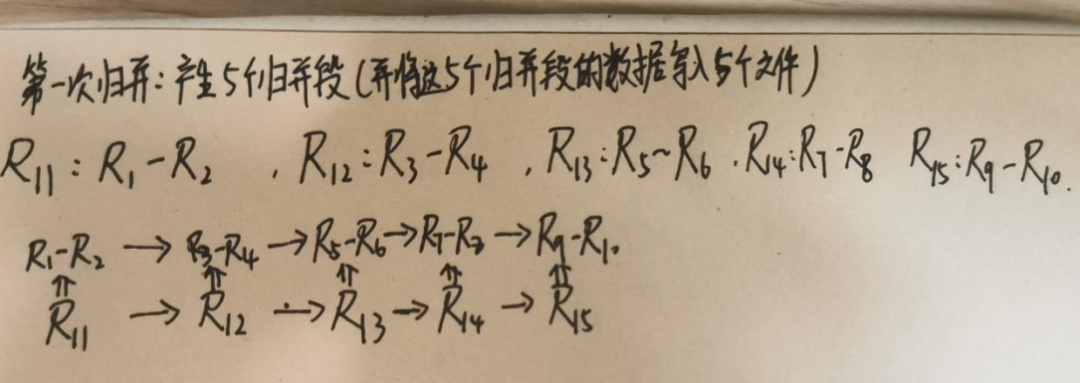 第一次归并：产生5个归并段(并将这5个归并段的数据写入5个文件)
R11：R1-R2 ，R12：R3-R4 ，R13：R5~R6 .R14：R7-R8 R15：R9-R10.
R1-R2 → R3-R4 → R5-R6 → R7-R8 → R9-R10
⇑ ⇑ ⇑ ⇑ ⇑
R11 → R12 → R13 → R14 → R15